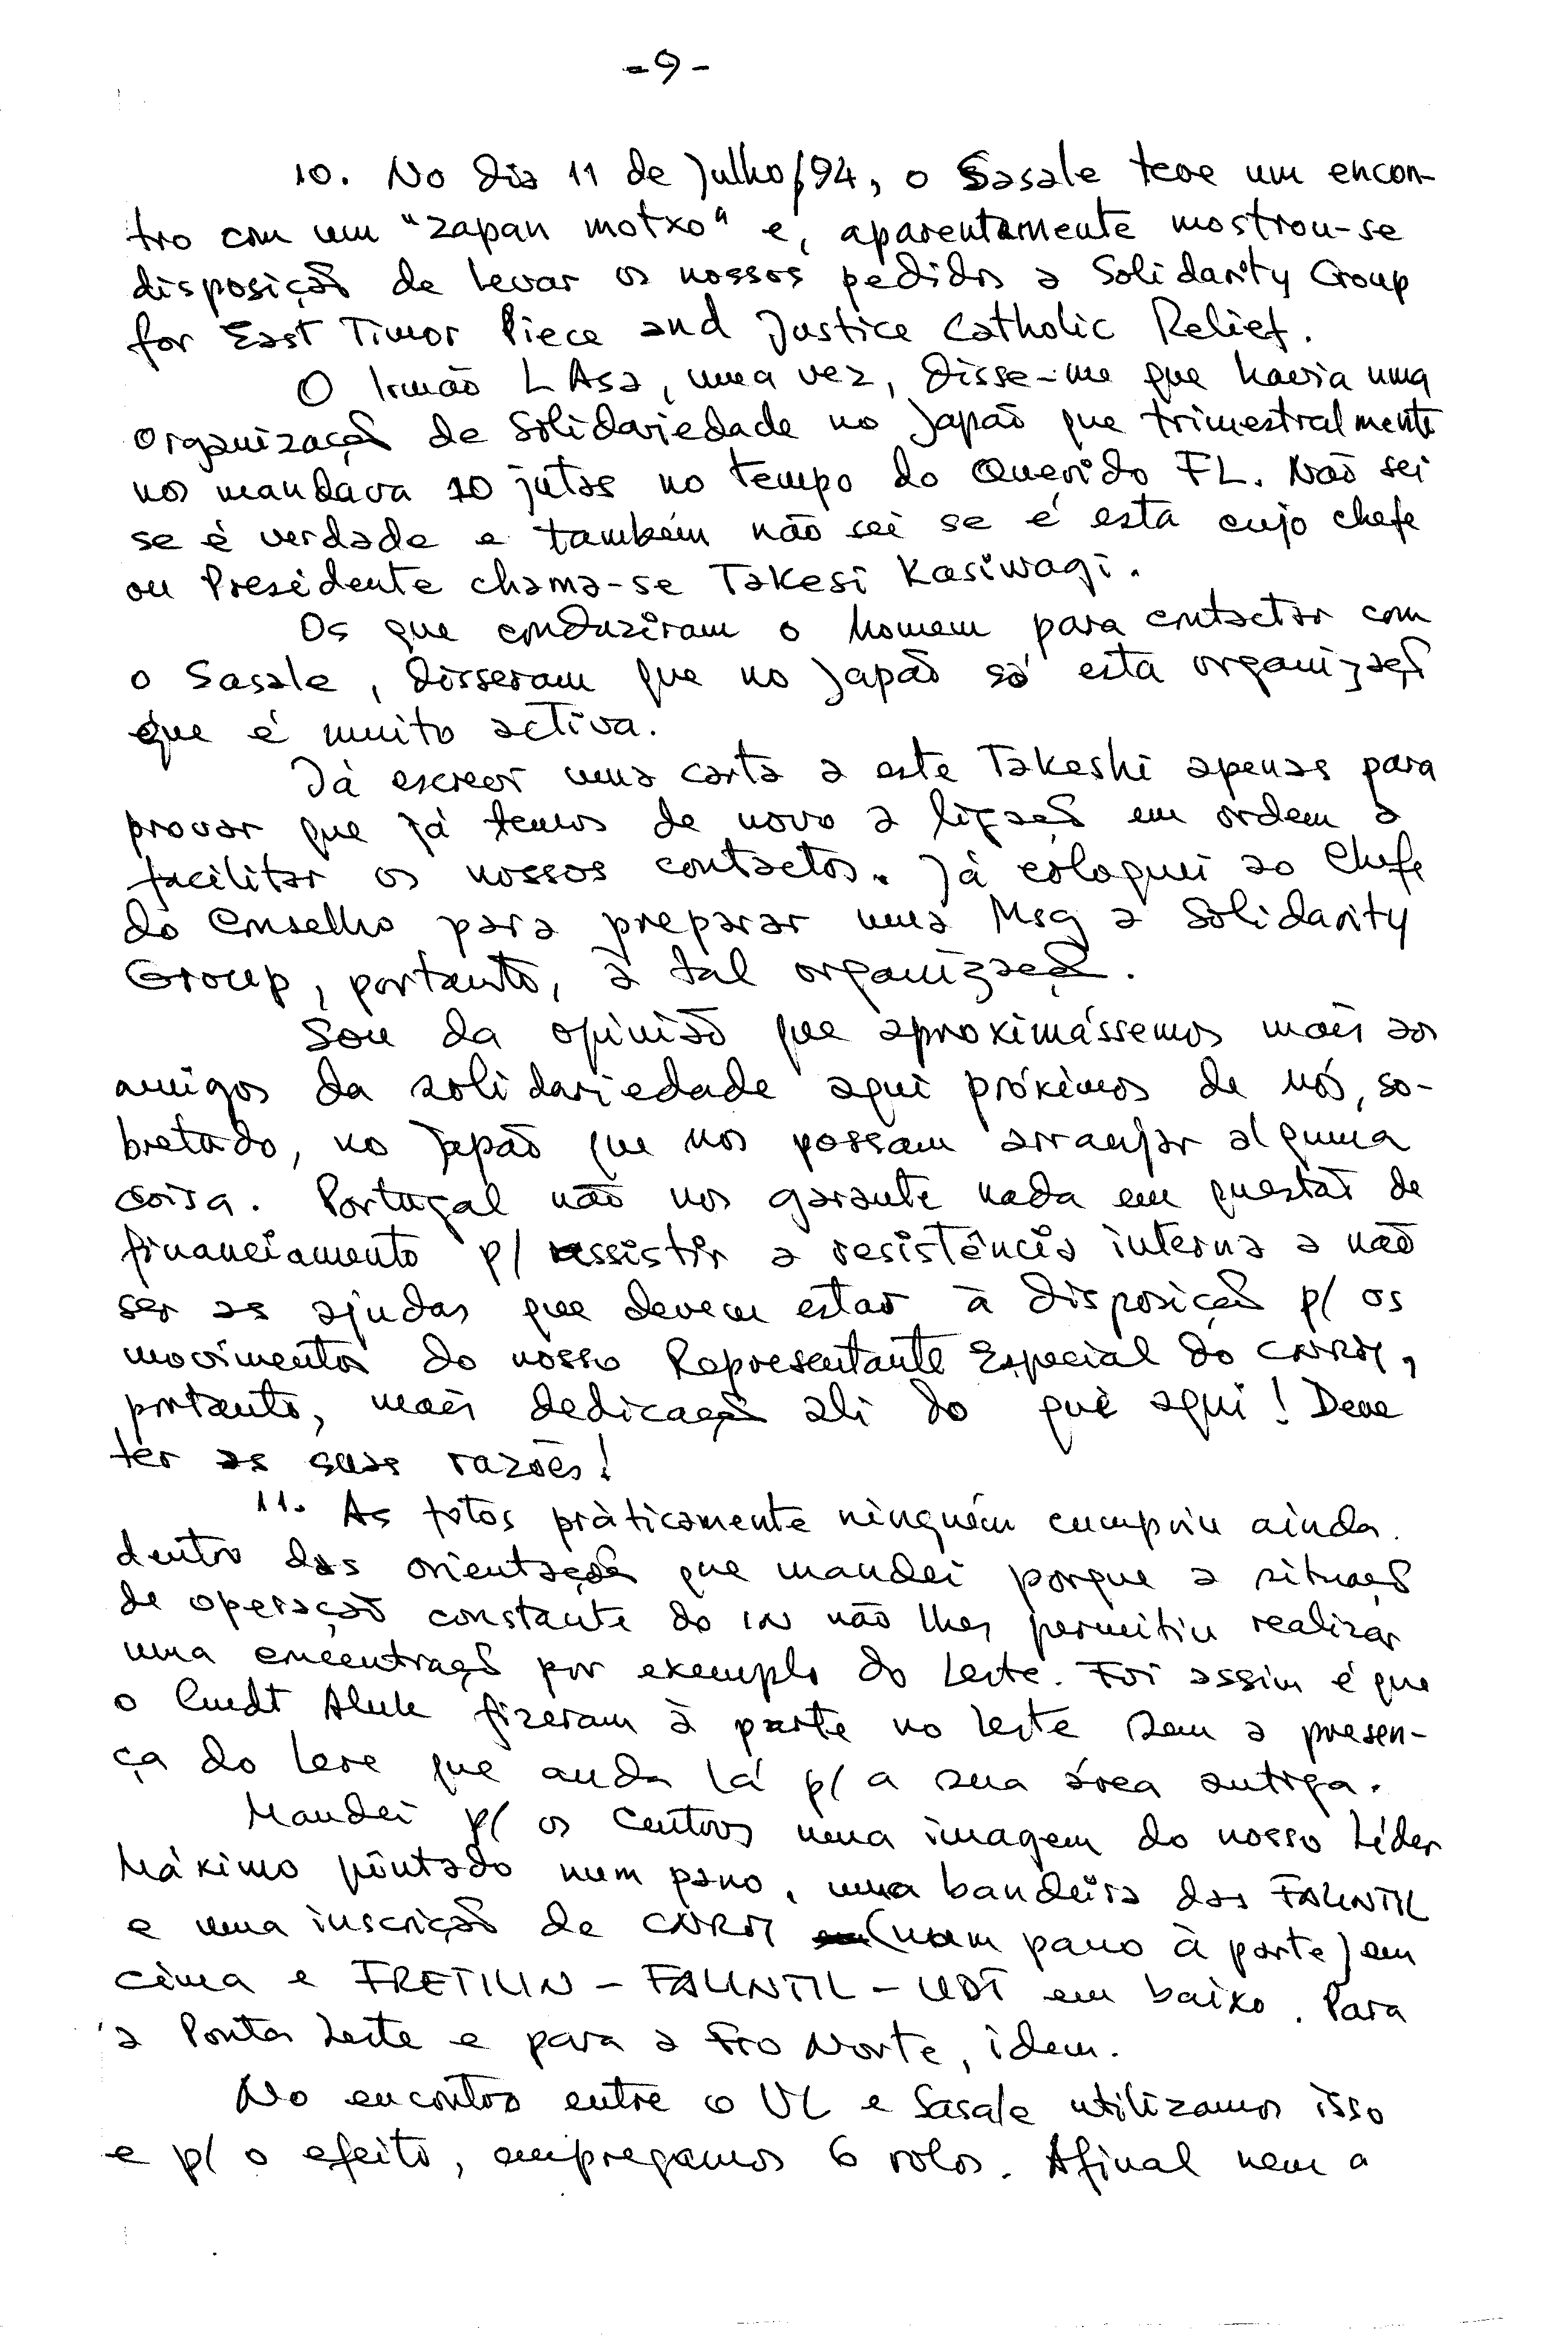 -9-
10. No dia 11 de Julho/94, o Sasale teve um encon-
tro com um "zapan motxo" e, aparentemente mostrou-se
disposição de levar os nossos pedidos a Solidarity Group
for East Timor Piece and Justice Catholic Relief.
O Irmão L Asa, uma vez, disse-me que havia uma
organização de solidariedade no Japão que trimestralmente
nos mandava 10 jutas no tempo do Querido FL. Não sei
se é verdade e também não sei se é esta cujo chefe
ou Presidente chama-se Takesi Kasiwagi.
Os que conduziram o homem para contactar com
o Sasale, disseram que no Japão só esta organização
que é muito activa.
Já escrevi uma carta a este Takeshi apenas para
provar que já temos de novo a ligação em ordem a
facilitar os nossos contactos. Já coloquei ao Chefe
do Conselho para preparar uma Msg a Solidarity
Group, portanto, à tal organização.
Sou da opinião que aproximássemos mais aos
amigos da solidariedade aqui próximos de nós, so-
bretudo, no Japão que nos possam arranjar alguma
coisa. Portugal não nos garante nada em questão de
financiamento p/ assistir a resistência interna a não
ser as ajudas que devem estar à disposição p/ os
movimentos do nosso Representante Especial do CNRM,
portanto, mais dedicação ali do que aqui! Deve
ter as suas razões!
11. As fotos pràticamente ninguém cumpriu ainda
dentro das orientações que mandei porque a situação
de operação constante do IN não lhes permitiu realizar
uma concentração por exemplo do Leste. Foi assim é que
o Cmdt Aluk fizeram à parte no leste sem a presen-
ça do Lere que anda lá p/ a sua área antiga.
Mandei p/ os Centros uma imagem do nosso Líder
Máximo pintado num pano, uma bandeira das FALINTIL
e uma inscrição de CNRM (num pano à parte) em
cima e FRETILIN - FALINTIL - UDT em baixo. Para
a Ponta Leste e para a Fro Norte, idem.
No encontro entre o UL e Sasale utilizamos isso
e p/ o efeito, empregamos 6 rolos. Afinal nem a